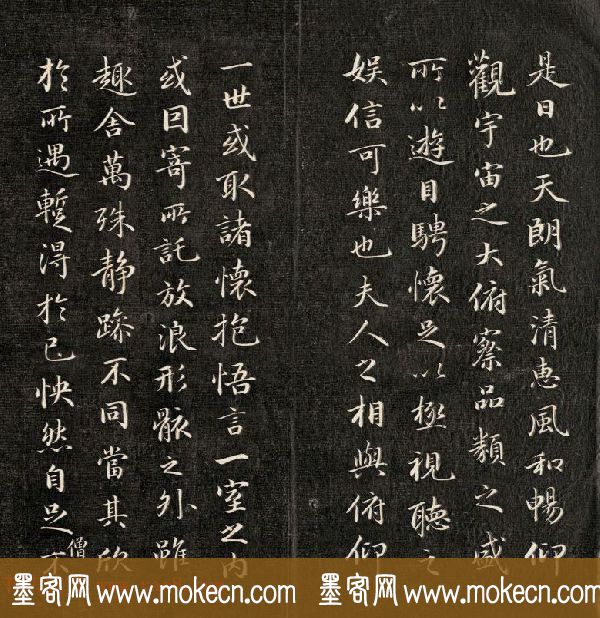 是日也天朗氣清惠風和暢仰
觀宇宙之大俯察品類之盛
所以遊目騁懷足以極視聽之
娛信可樂也夫人之相與俯仰
一世或取諸懷抱悟言一室之內
或因寄所託放浪形骸之外雖
趣舍萬殊静躁不同當其欣
於所遇暫得於己怏然自足不
僧
墨客网 www.mokecn.com 墨客网 www.mokecn.com